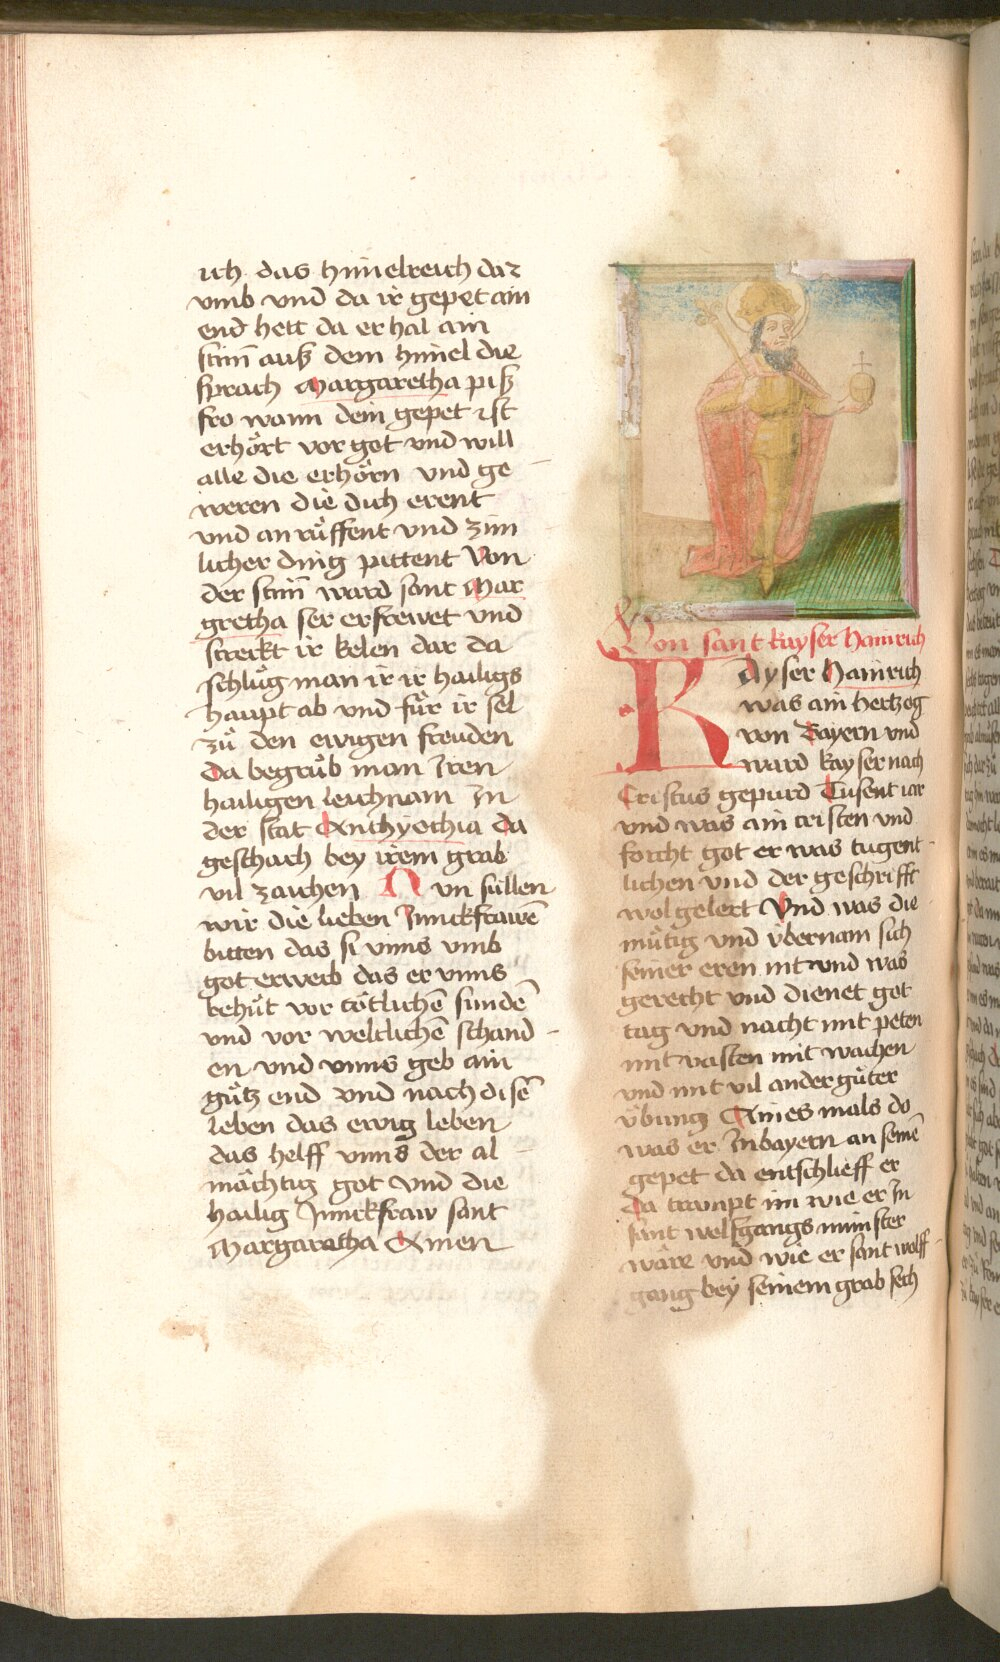 ich das himelreich dar
vmb vnd da ir gepet ain
end hett da erhal ain
stim̄ auß dem himel die
sprach Margaretha piß
fro wann dein gepet ist
erhört vor got vnd will
alle die erhörn vnd ge
weren die dich erent
vnd an rüffent vnd zim
licher ding pittent Von
der stim̄ ward sant Mar
gretha ser erfrewet vnd
streckt ir kelen dar da
schlůg man ir ir hailigs
haupt ab vnd fůr ir sel
zů den ewigen freuden
Da begrůb man Iren
hailigen leichnam In
der stat Anthyochia da
geschach bey irem grab
vil zaichen Nun süllen
wir die lieben Junckfrawē
bitten das si vnns vmb
got erwerb das er vnns
behüt vor tötlichē sündē
vnd vor weltlichē schand
en vnd vnns geb ain
gůtz end vnd nach disē
leben das ewig leben
das helff vnns der al
mächtig got vnd die
hailig Junckfraw sant
Margaretha Amen
Von sant kayser hainrich
Kayser Hainrich
was ain hertzog
von Bayern vnd
ward kayser nach
Cristus gepurd Tusent iar
vnd was ain cristen vnd
forcht got er was tugent
lichen vnd der geschrifft
wol gelert Vnd was die
mütig vnd vbernam sich
seiner eren nit vnd was
gerecht vnd dienet got
tag vnd nacht mit peten
mit vasten mit wachen
vnd mit vil ander gůter
übung Aines mals do
was er In bayern an seinē
gepet da entschlieff er
Da traupt im wie er In
sant wolfgangs münster
wäre vnd wie er sant wolff
gang bey seinem grab sech